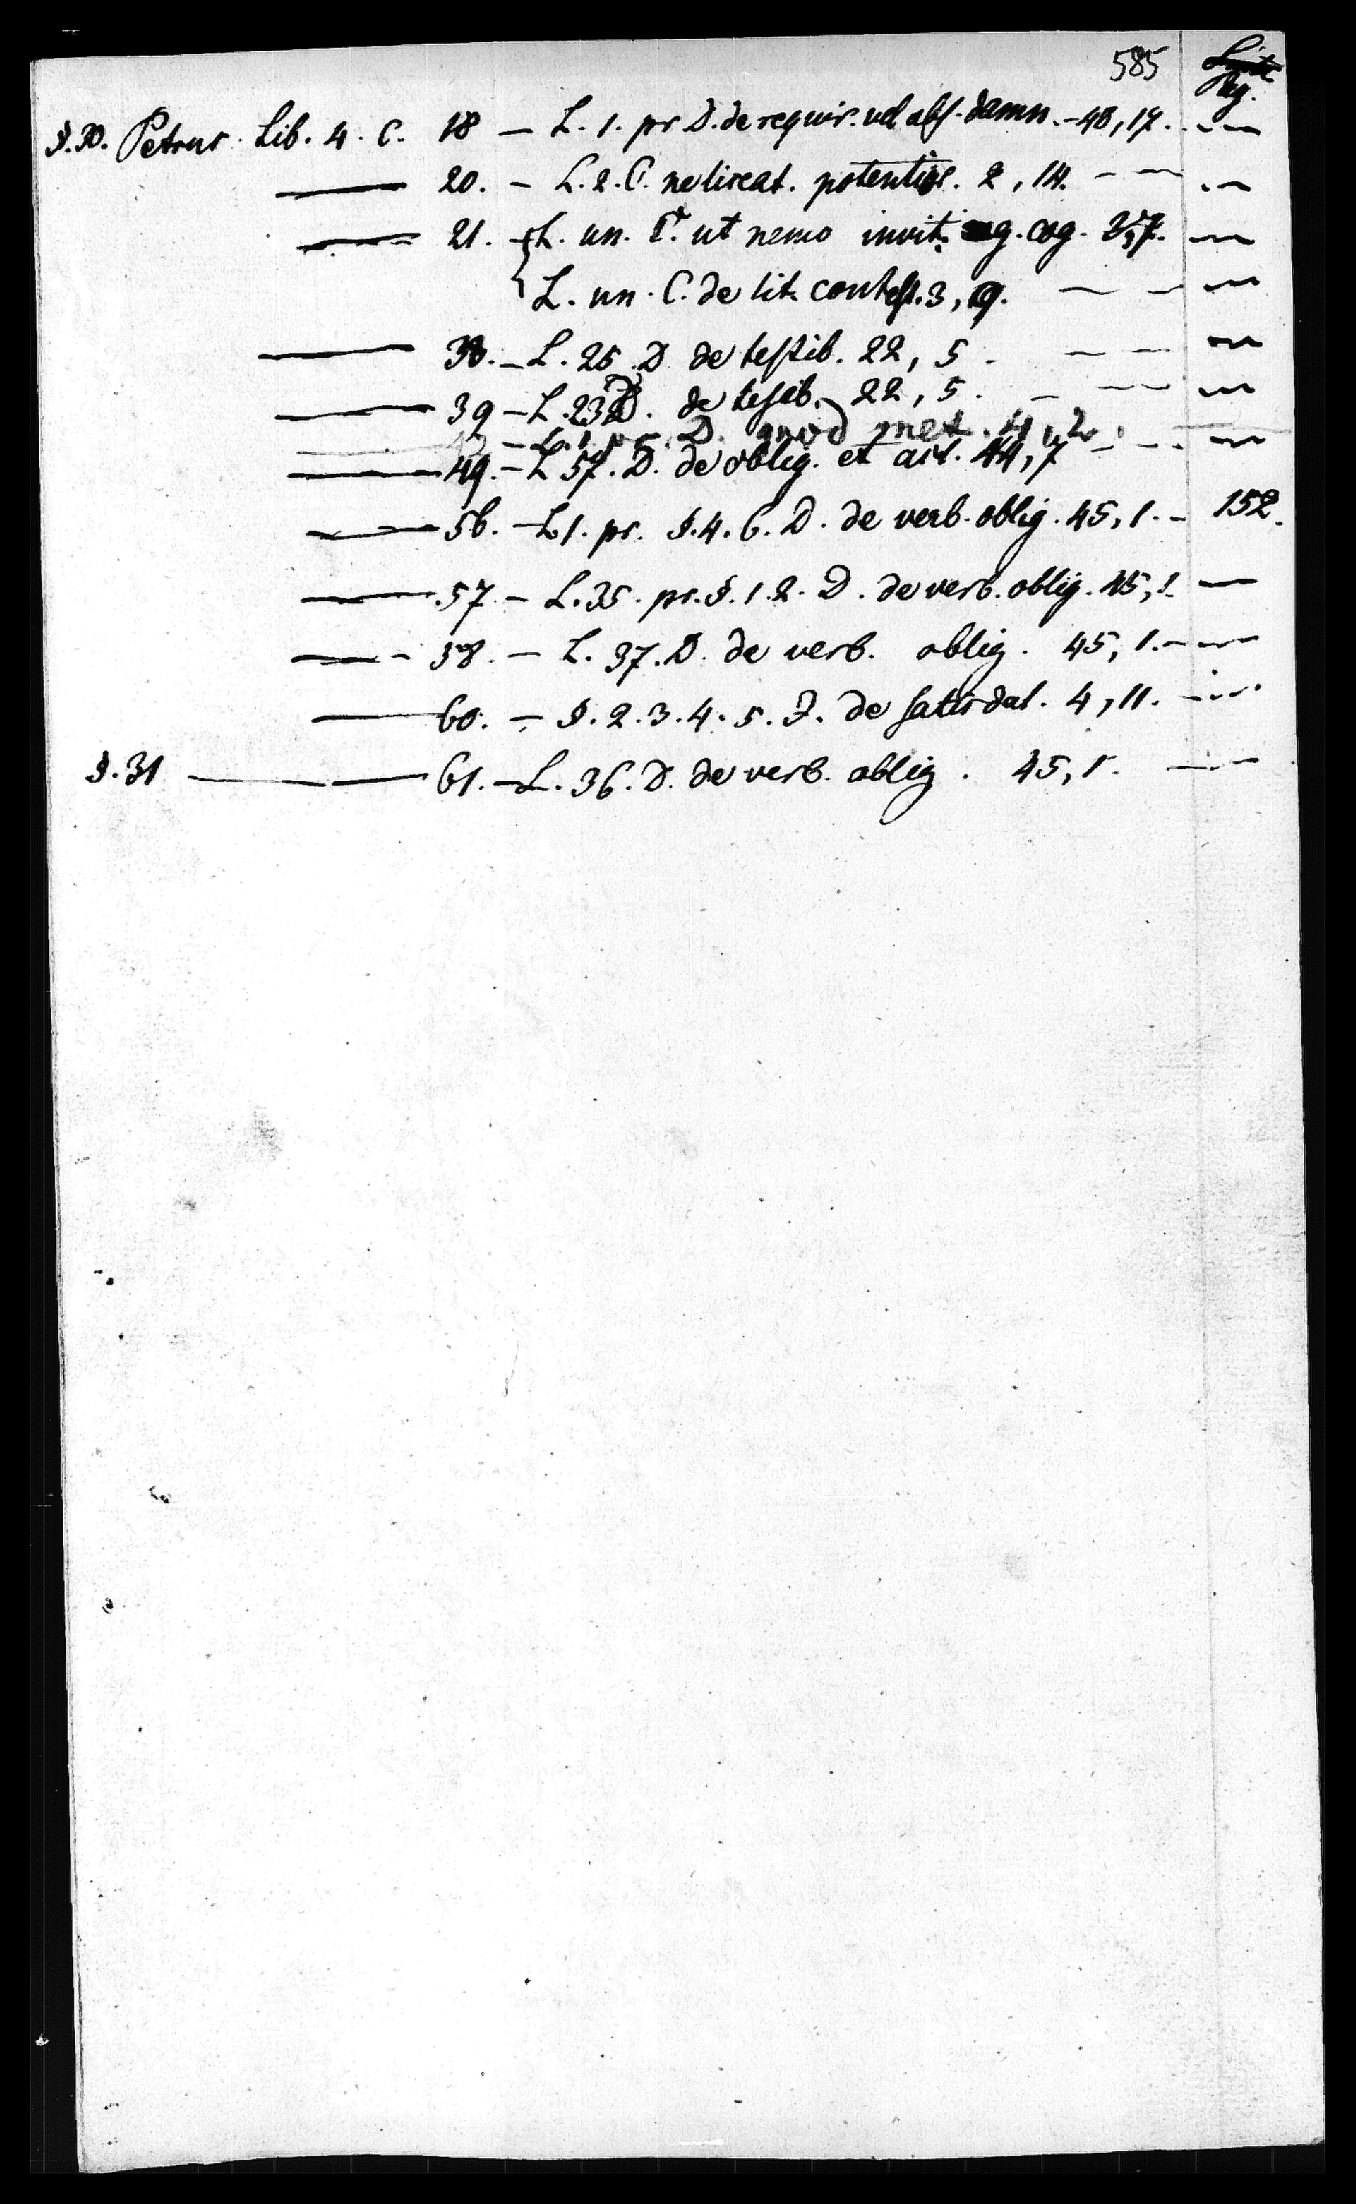 585
pg.
§. 30. Petrus. Lib. 4. C. 18 — L. 1. pr D. de requir. vel abs. damn. — 48, 17. — —
— 20. — L. 2. C. ne liceat. potentior. 2, 14. — — —
— 21. — L. un. C. ut nemo invit. ag. cog. 3, 7. —
L. un. C. de lit. contest. 3, 9. — — —
— 38. — L. 25. D. de testib. 22, 5. — — —
— 39 — L. 23 D. de testib. 22, 5. — — —
— L. 1. pr. D. quod met. 4, 2.
— 49. — L 57. D. de oblig. et act. 44, 7 — — —
— 56. — L 1. pr. §. 4. 6. D. de verb. oblig. 45, 1. — 152.
— 57. — L. 35. pr. §. 1. 2. D. de verb. oblig. 45, 1. —
— 58. — L. 37. D. de verb. oblig. 45, 1. — —
— 60. — §. 2. 3. 4. 5. I. de satisdat. 4, 11. — —
§. 31 — — 61. — L. 36. D. de verb. oblig. 45, 1. — —